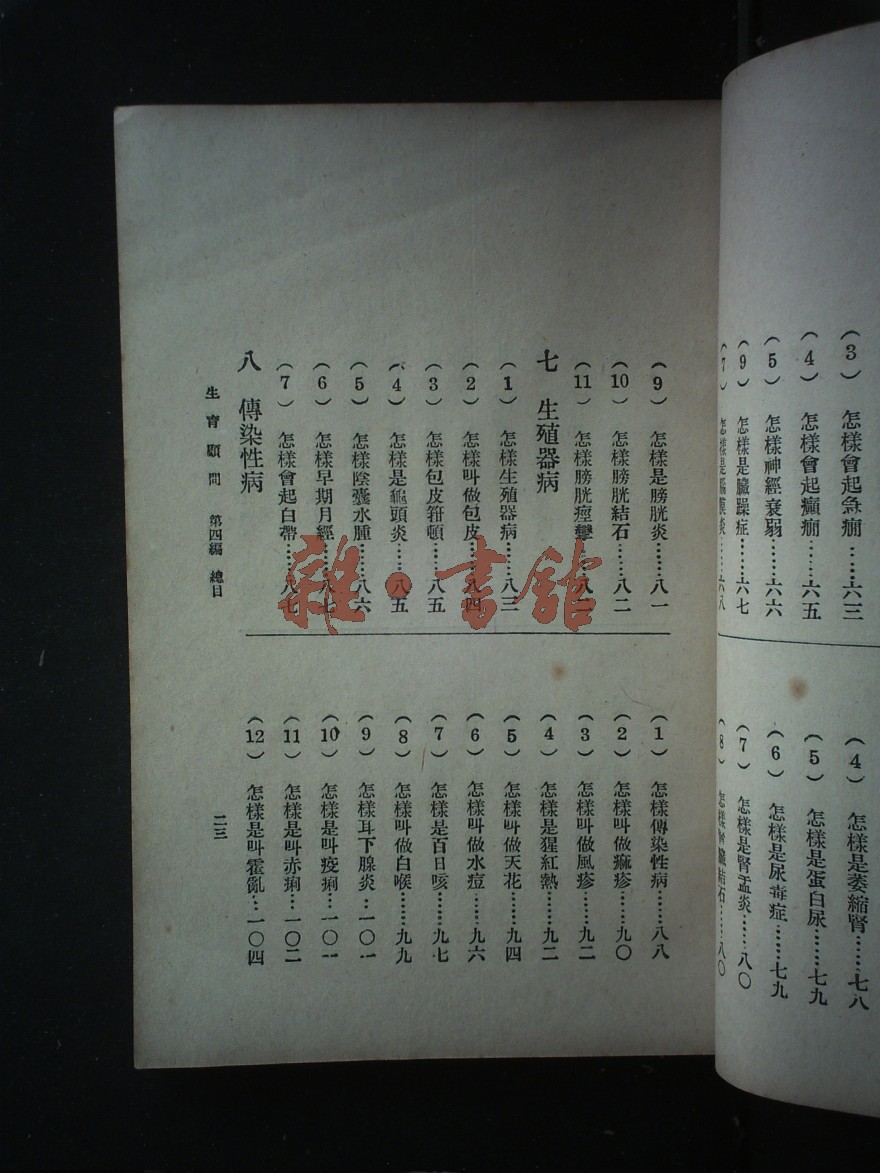 (3) 怎樣會起急癇……六三
(4) 怎樣會起癲癇……六五
(5) 怎樣神經衰弱……六六
(9) 怎樣是臟躁症……六七
(4) 怎樣是萎縮腎……七八
(5) 怎樣是蛋白尿……七九
(6) 怎樣是尿毒症……七九
(7) 怎樣是腎盂炎……八〇
(9) 怎樣是膀胱炎……八一
(10) 怎樣膀胱結石……八二
(11) 怎樣膀胱痙攣……八二
七 生殖器病
(1) 怎樣生殖器病……八三
(2) 怎樣叫做包皮……八四
(3) 怎樣包皮箝頓……八五
(4) 怎樣是龜頭炎……八五
(5) 怎樣陰囊水腫……八六
(6) 怎樣早期月經……八七
(7) 怎樣會起白帶……八七
八 傳染性病
(1) 怎樣傳染性病……八八
(2) 怎樣叫做痲疹……九〇
(3) 怎樣叫做風疹……九二
(4) 怎樣是猩紅熱……九二
(5) 怎樣叫做天花……九四
(6) 怎樣叫做水痘……九六
(7) 怎樣是百日咳……九七
(8) 怎樣叫做白喉……九九
(9) 怎樣耳下腺炎…一〇一
(10) 怎樣是叫疫痢…一〇一
(11) 怎樣是叫赤痢…一〇二
(12) 怎樣是叫霍亂…一〇四
生育顧問 第四編 總目
二三
雜·書館